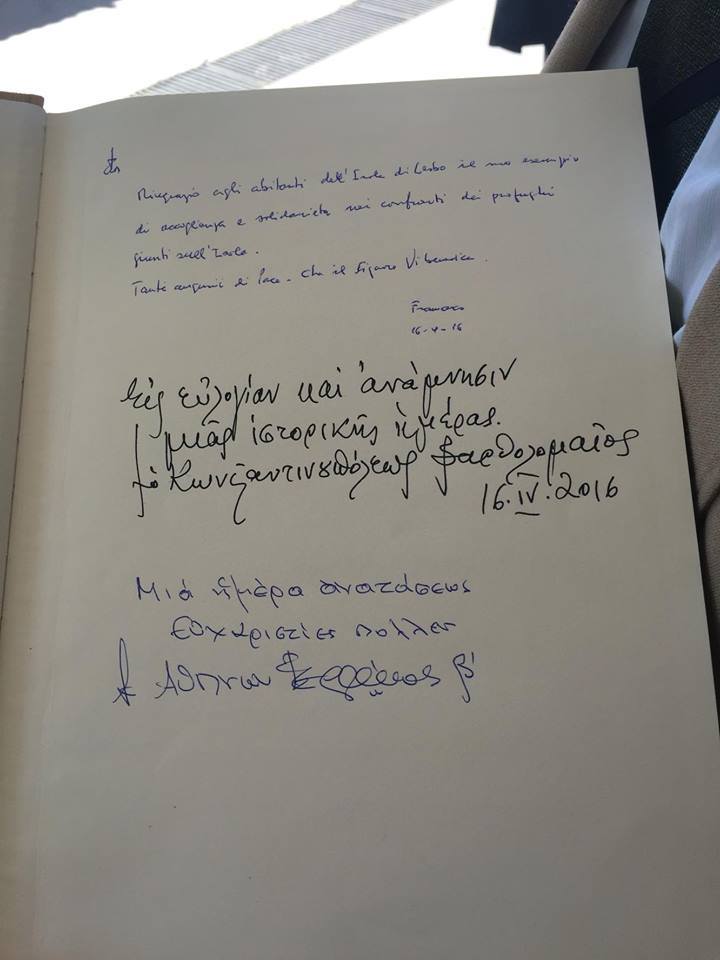 Ringrazio agli abitanti dell'Isola di Lesbo il suo esempio
di accoglienza e solidarietà nei confronti dei profughi
giunti sull'Isola.
Tanti auguri di Pace. Che il Signore Vi benedica.
Francesco
16-4-16
Εἰς εὐλογίαν καὶ ἀνάμνησιν
μιᾶς ἱστορικῆς ἡμέρας.
ὁ Κωνσταντινουπόλεως Βαρθολομαῖος
16.IV.2016
Μιά ἡμέρα ανατάσεως
Εὐχαριστίες πολλές
Ἀθηνῶν Ἱερώνυμος β'